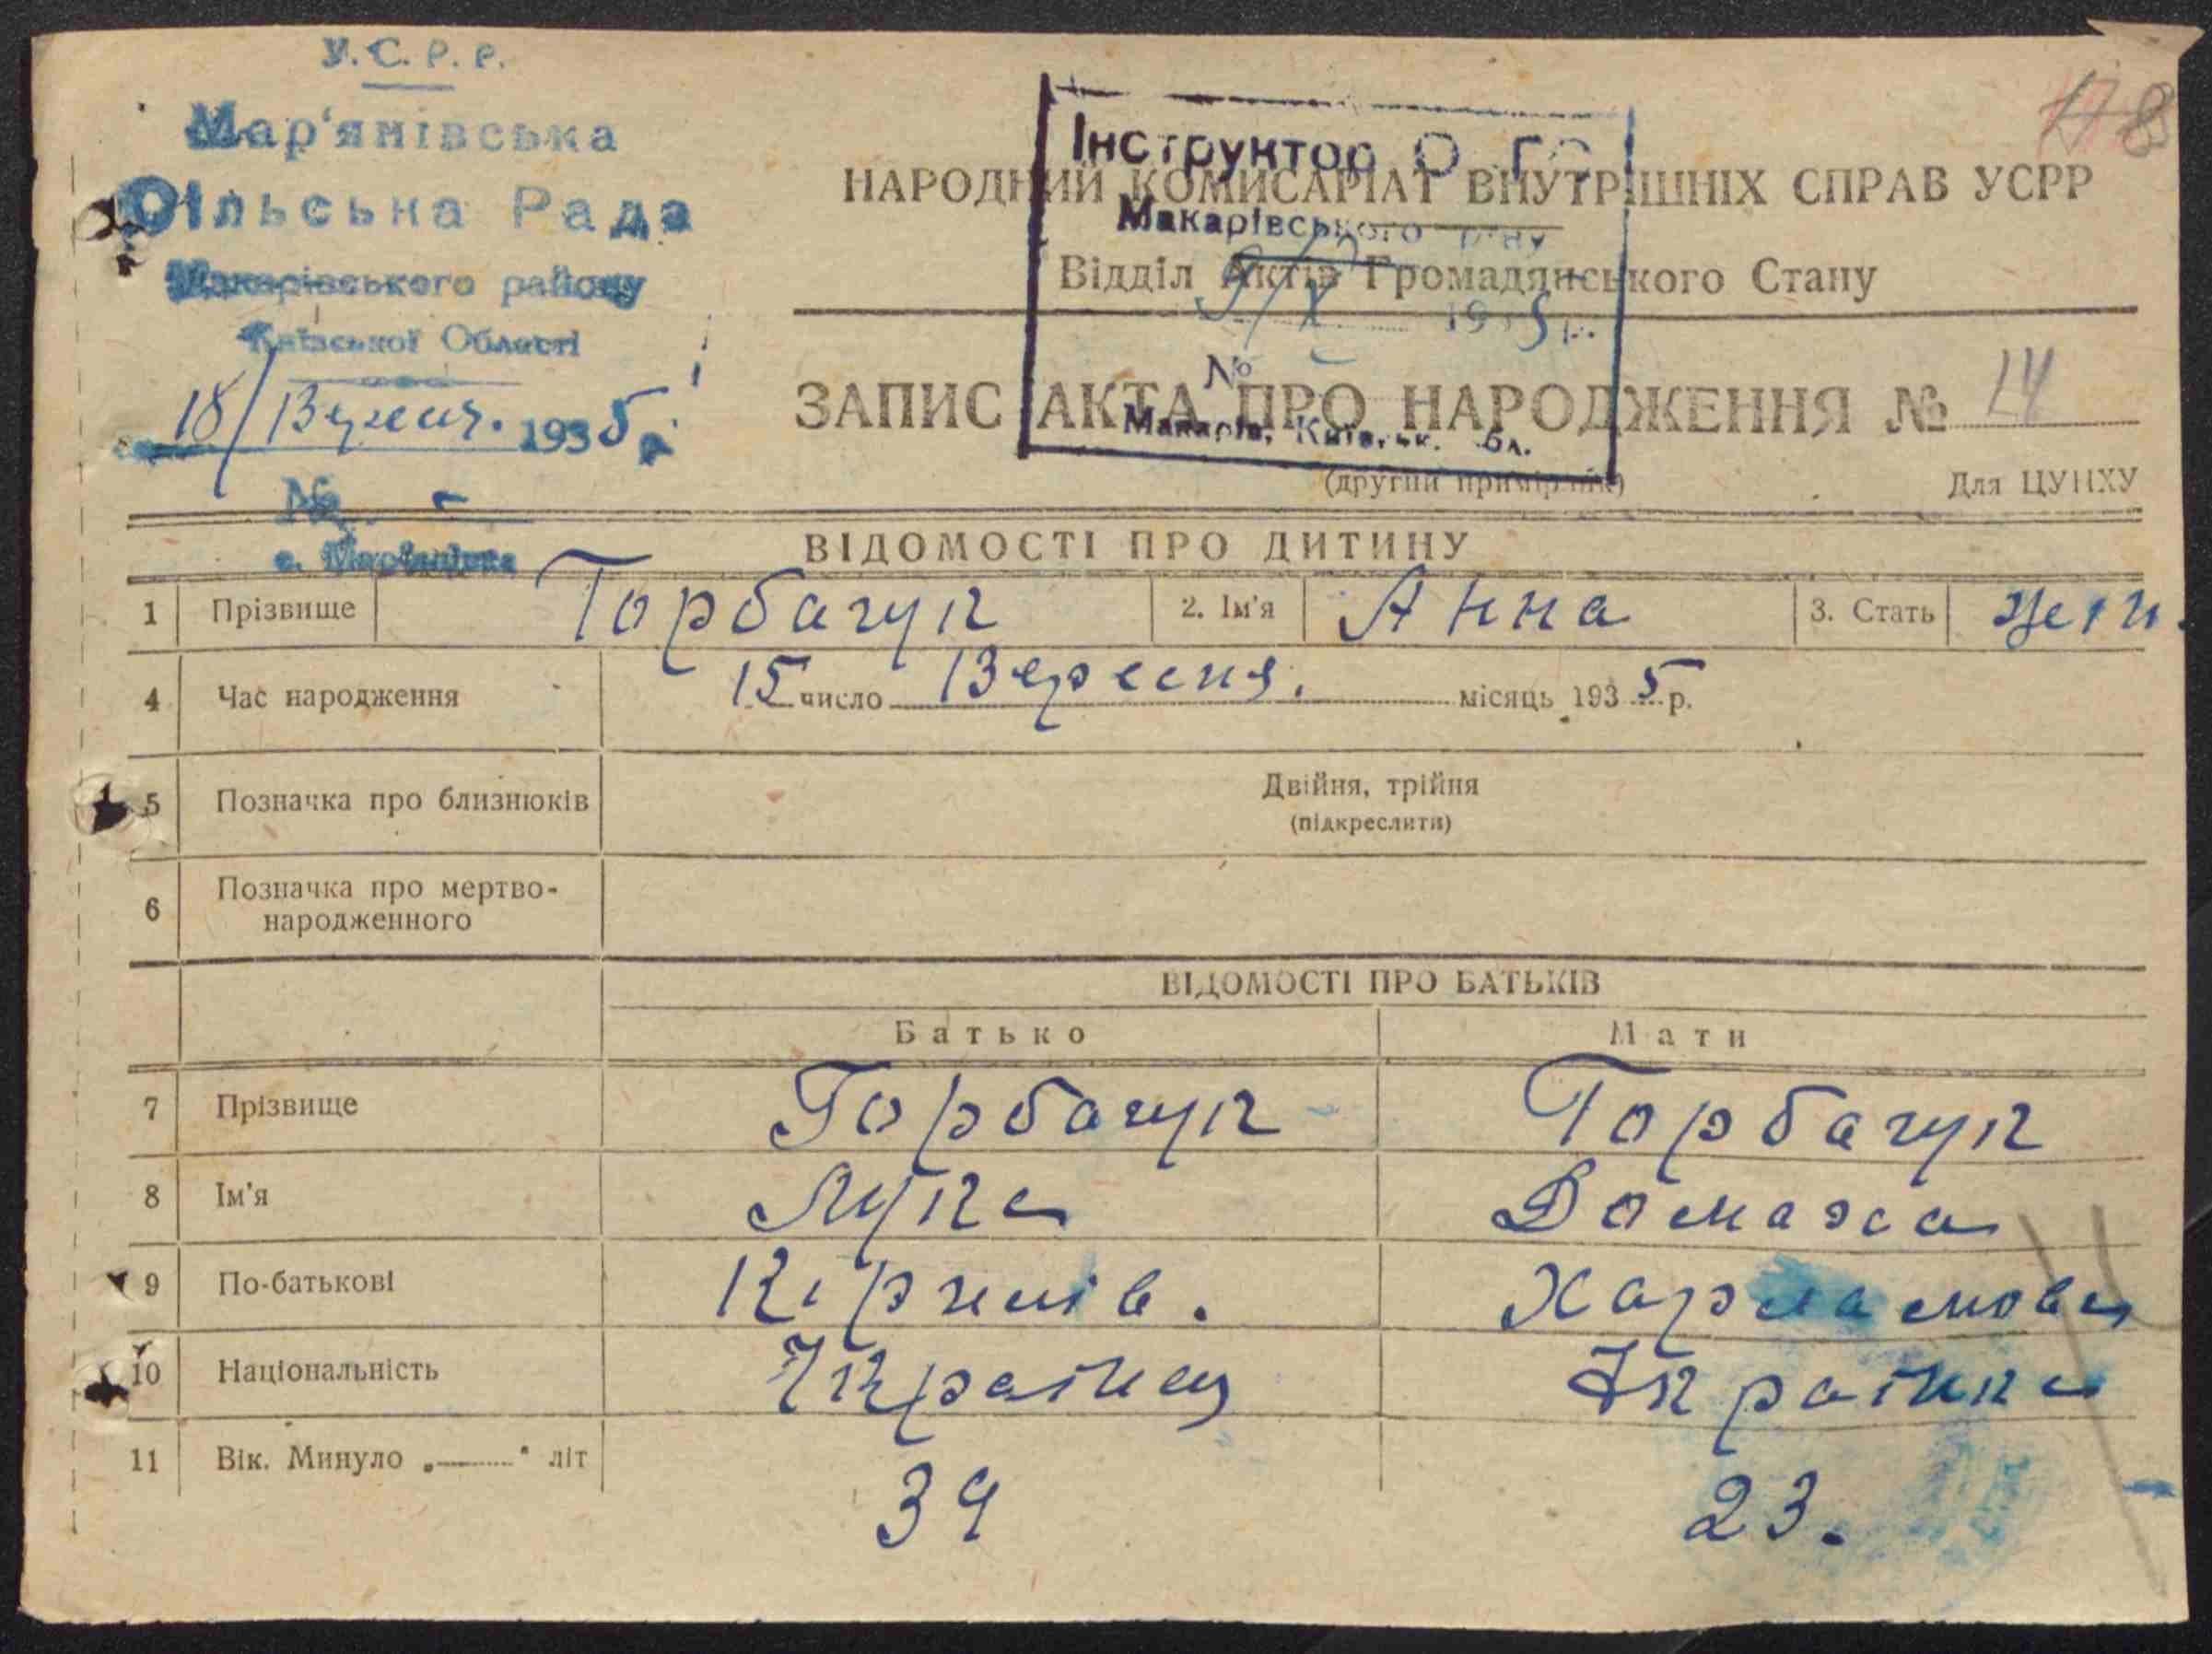 У.С.Р.Р.
Мар'янівська
Сільська Рада
Макарівського району
Київської Області
18/Вересня. 1935 р.
№ -
с. Мар'янівка
178
Інструктор О Г С
Макарівського р-ну
9/X 1935 р.
№
Макарів, Київськ. обл.
НАРОДНИЙ КОМИСАРІАТ ВНУТРІШНІХ СПРАВ УСРР
Відділ Актів Громадянського Стану
ЗАПИС АКТА ПРО НАРОДЖЕННЯ № 14
(другий примірник)
Для ЦУНХУ
ВІДОМОСТІ ПРО ДИТИНУ
1 Прізвище Горбачук 2. Ім'я Анна 3. Стать жін.
4 Час народження 15 число Вересня. місяць 1935 р.
5 Позначка про близнюків Двійня, трійня
(підкреслити)
6 Позначка про мертво-
народженного
ВІДОМОСТІ ПРО БАТЬКІВ
Батько Мати
7 Прізвище Горбачук Горбачук
8 Ім'я Лука Домаха
9 По-батькові Харламова
10 Національність Украінец Украінка
11 Вік. Минуло „——" літ 39 23.